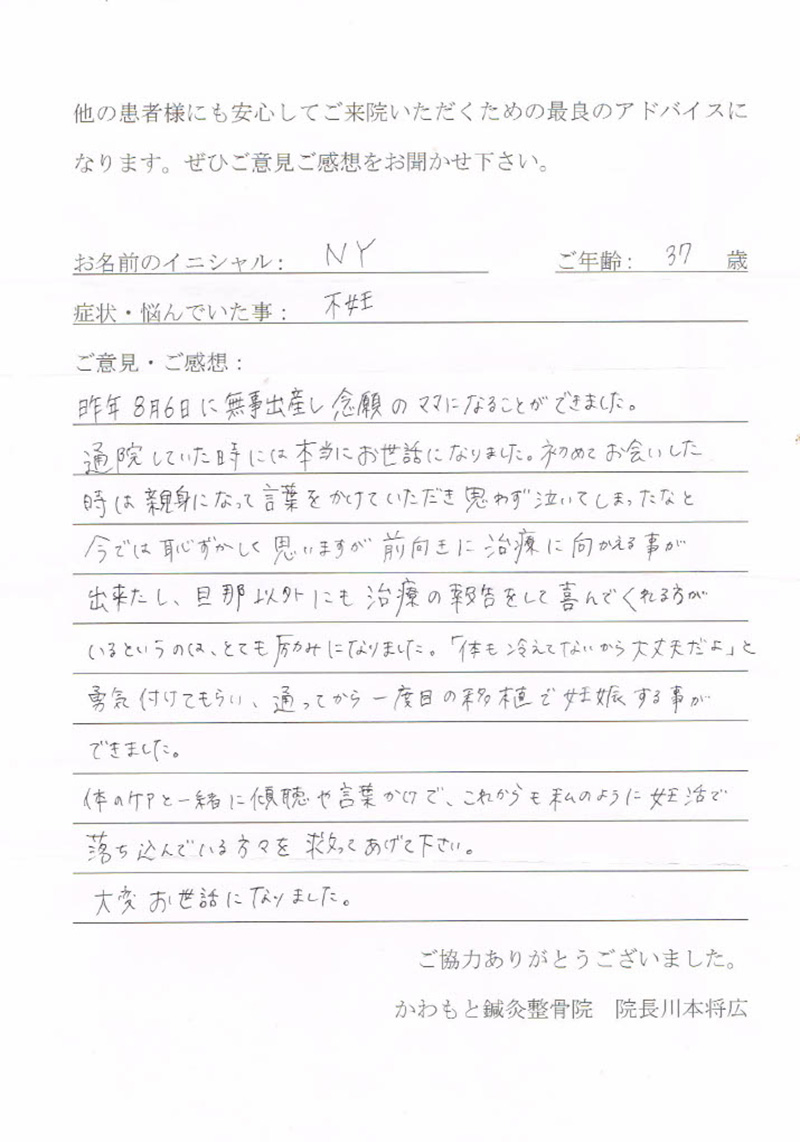 他の患者様にも安心してご来院いただくための最良のアドバイスに
なります。ぜひご意見ご感想をお聞かせ下さい。
お名前のイニシャル： NY ご年齢： 37 歳
症状・悩んでいた事： 不妊
ご意見・ご感想：
昨年8月6日に無事出産し念願のママになることができました。
通院していた時には本当にお世話になりました。初めてお会いした
時は親身になって言葉をかけていただき思わず泣いてしまったなと
今では恥ずかしく思いますが前向きに治療に向かえる事が
出来たし、旦那以外にも治療の報告をして喜んでくれる方が
いるというのは、とても励みになりました。「体も冷えてないから大丈夫だよ」と
勇気付けてもらい、通ってから一度目の移植で妊娠する事が
できました。
体のケアと一緒に傾聴や言葉かけで、これからも私のように妊活で
落ち込んでいる方々を救ってあげて下さい。
大変お世話になりました。
ご協力ありがとうございました。
かわもと鍼灸整骨院 院長川本将広